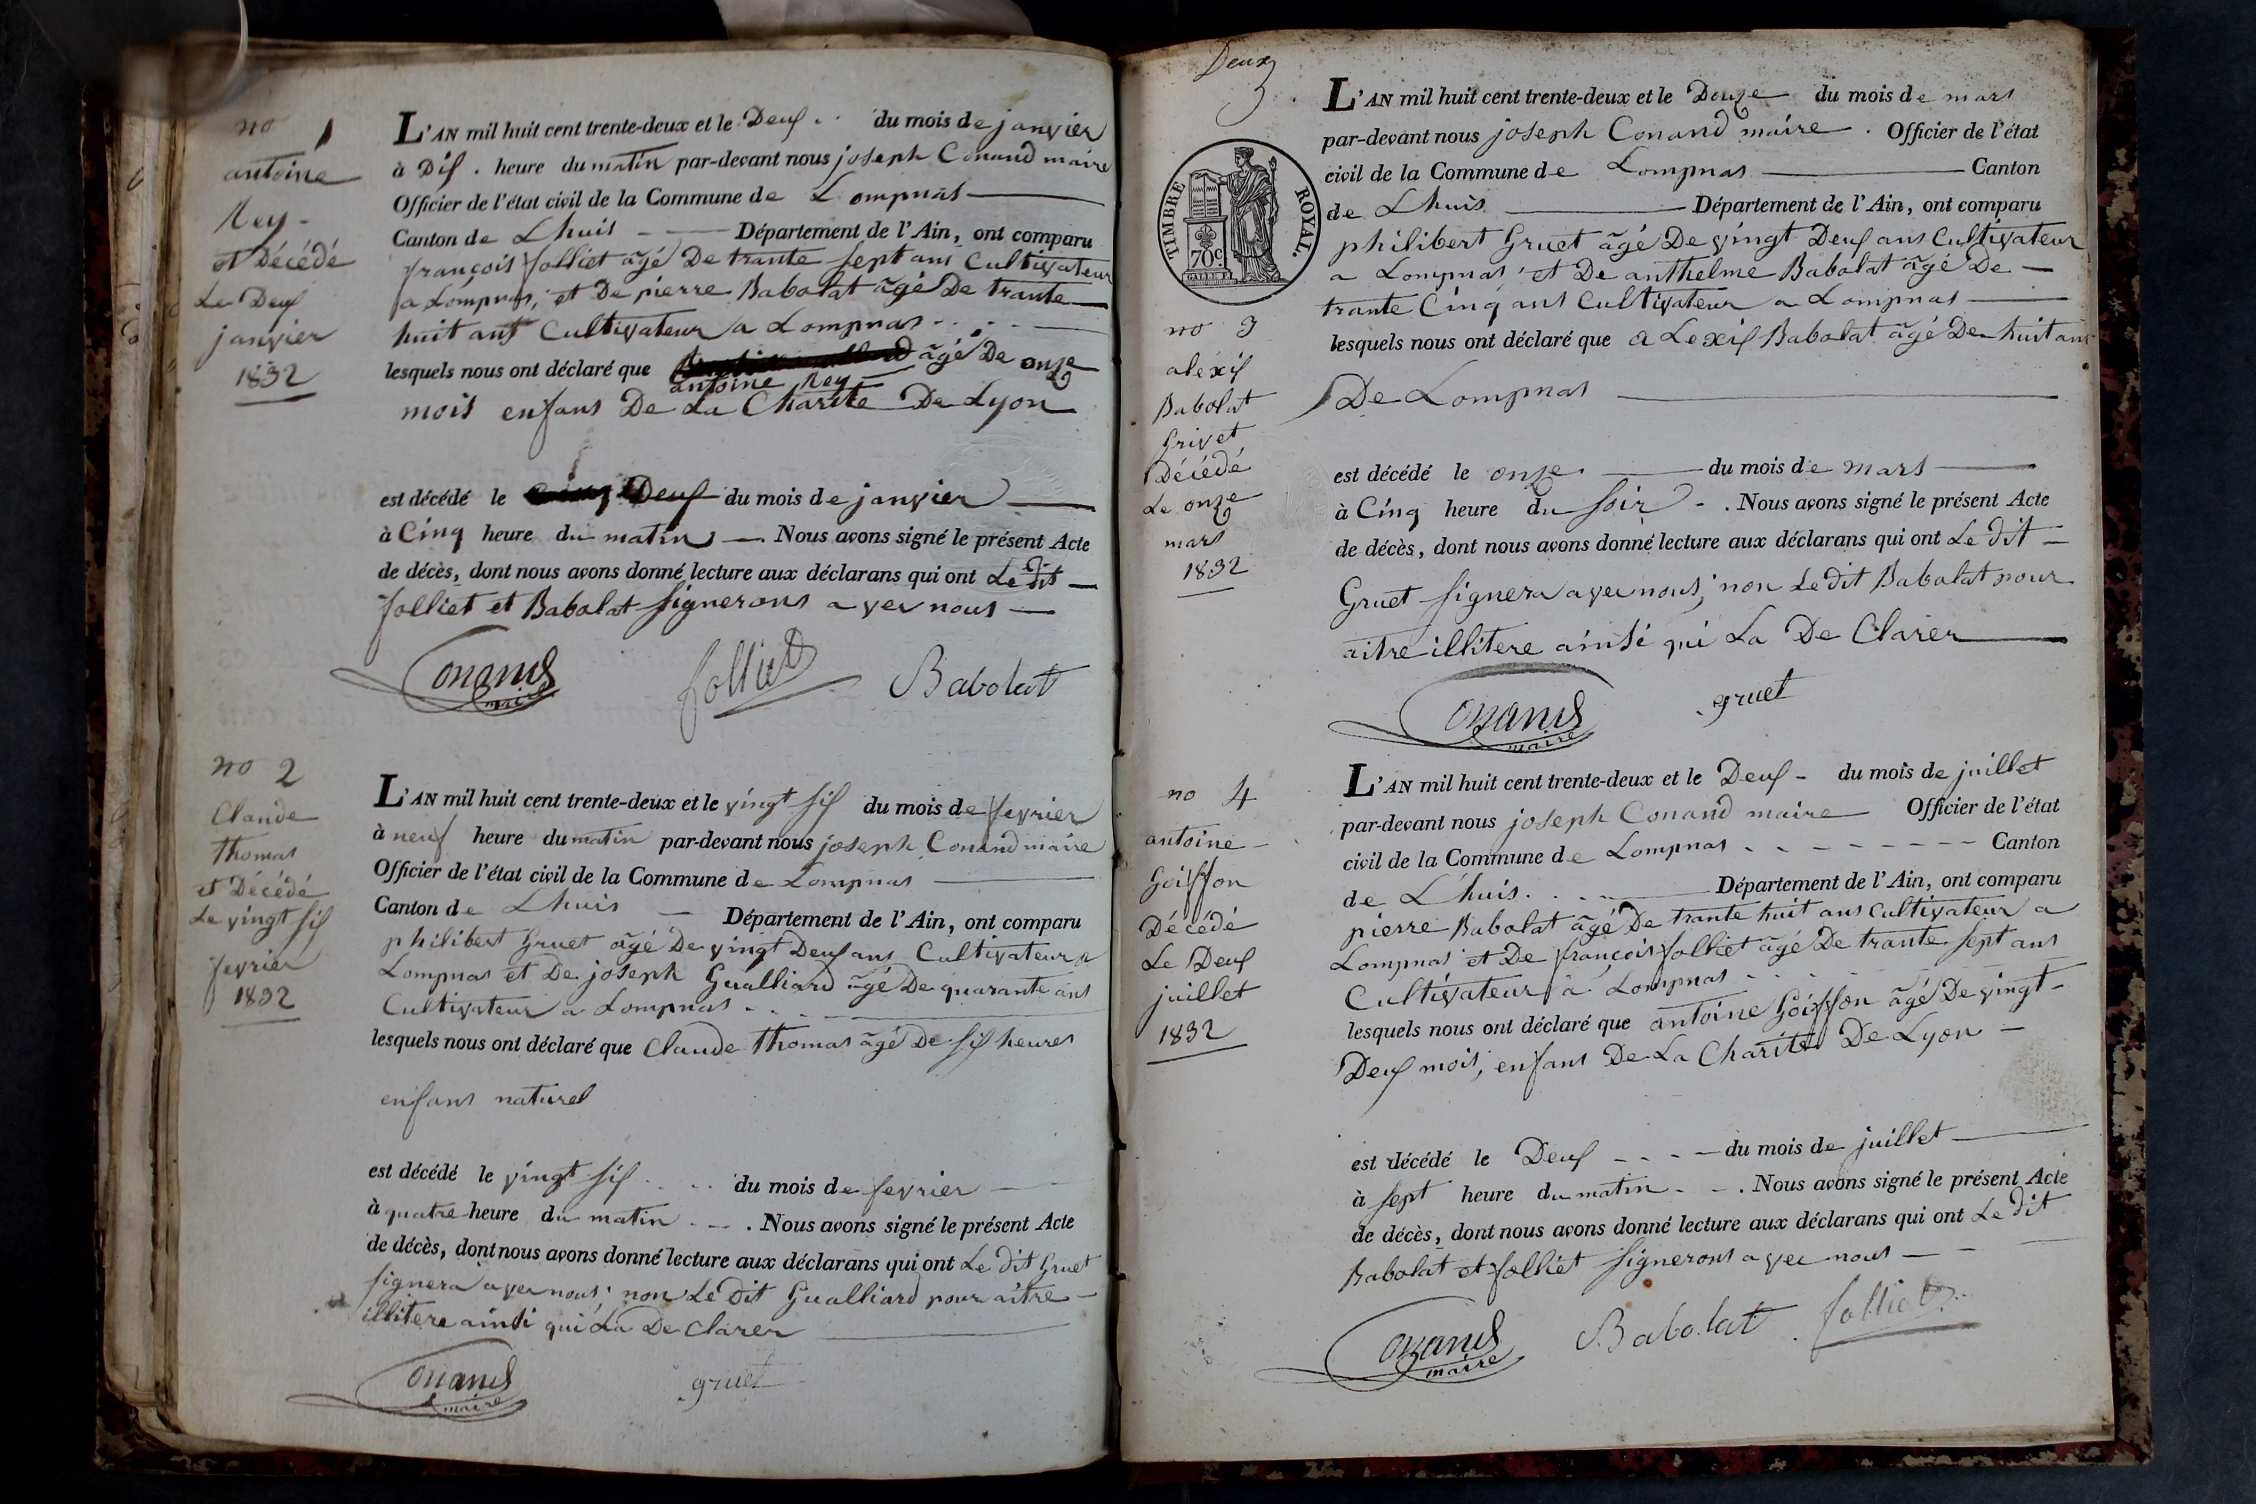 no 1
antoine
Rey -
et Décédé
Le Deux
janvier
1832
L'AN mil huit cent trente-deux et le Deux . . du mois de janvier
à Dix . heure du matin par-devant nous joseph Conand maire
Officier de l'état civil de la Commune de Lompnas
Canton de Lhuis Département de l'Ain, ont comparu
françois folliet âgé De trante sept ans Cultivateur
a Lompnas, et De pierre Babolat âgé De trante
huit ans Cultivateur a Lompnas
lesquels nous ont déclaré que âgé De onze
antoine Rey
mois enfans De La Charité De Lyon
est décédé le Deux du mois de janvier
à Cinq heure du matin . Nous avons signé le présent Acte
de décès, dont nous avons donné lecture aux déclarans qui ont Le dit
folliet et Babolat signerons avec nous
Conand
maire
folliet
Babolat
no 2
Claude
thomas
et Décédé
Le vingt six
fevrier
1832
L'AN mil huit cent trente-deux et le vingt six du mois de fevrier
à neuf heure du matin par-devant nous joseph Conand maire
Officier de l'état civil de la Commune de Lompnas
Canton de Lhuis Département de l'Ain, ont comparu
philibert Gruet âgé De vingt Deux ans Cultivateur a
Lompnas et De joseph Gualliard âgé De quarante ans
Cultivateur a Lompnas
lesquels nous ont déclaré que Claude thomas âgé De six heures
enfans naturel
est décédé le vingt six du mois de fevrier
à quatre heure du matin . Nous avons signé le présent Acte
de décès, dont nous avons donné lecture aux déclarans qui ont Le dit Gruet
signera avec nous non Le dit Gualliard pour aitre
illitere ainsi qui La De Clarer
Conand
maire
gruet
Deux
TIMBRE ROYAL.
70c.
no 3
alexis
Babolat
Grivet
Décédé
Le onze
mars
1832
L'AN mil huit cent trente-deux et le Douze du mois de mars
par-devant nous joseph Conand maire . Officier de l'état
civil de la Commune de Lompnas Canton
de Lhuis Département de l'Ain, ont comparu
philibert Gruet âgé De vingt Deux ans Cultivateur
a Lompnas et De anthelme Babolat âgé De
trante Cinq ans Cultivateur a Lompnas
lesquels nous ont déclaré que aLexis Babolat âgé De huit ans
De Lompnas
est décédé le onze du mois de mars
à Cinq heure du soir . Nous avons signé le présent Acte
de décès, dont nous avons donné lecture aux déclarans qui ont Le dit
Gruet signera avec nous, non Le dit Babolat pour
aitre illitere ainsi qui La De Clarer
Conand
maire
gruet
no 4
antoine
Goiffon
Décédé
Le Deux
juillet
1832
L'AN mil huit cent trente-deux et le Deux du mois de juillet
par-devant nous joseph Conand maire Officier de l'état
civil de la Commune de Lompnas Canton
de Lhuis. Département de l'Ain, ont comparu
pierre Babolat âgé De trante huit ans Cultivateur a
Lompnas et De françois folliet âgé De trante sept ans
Cultivateur a Lompnas
lesquels nous ont déclaré que antoine Goiffon âgé De vingt
Deux mois, enfans De La Charité De Lyon
est décédé le Deux du mois de juillet
à sept heure du matin . Nous avons signé le présent Acte
de décès, dont nous avons donné lecture aux déclarans qui ont Le dit
Babolat et folliet signerons avec nous
Conand
maire
Babolat
folliet